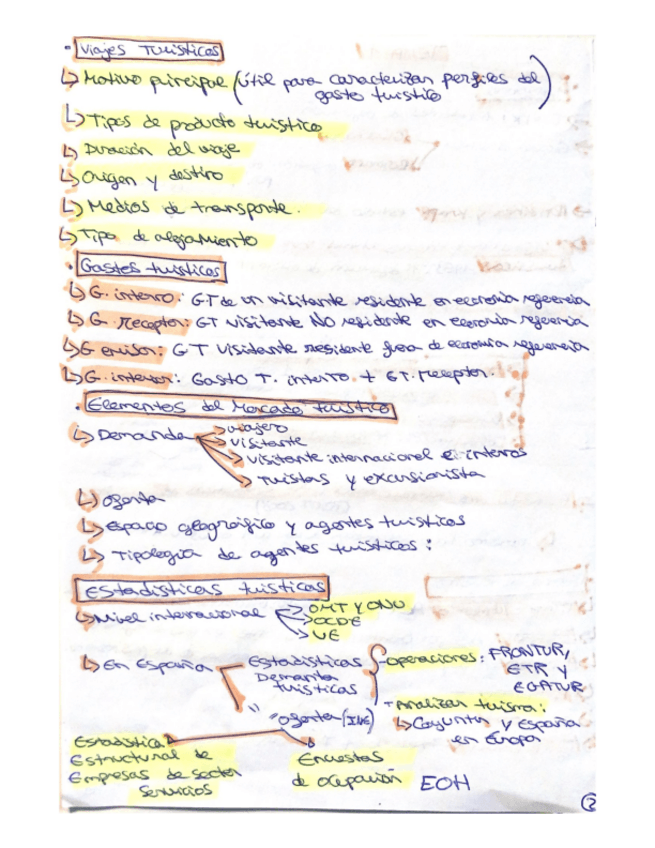 · Viajes Turísticos
↳ Motivo principal (útil para caracterizar perfiles del
gasto turístico)
↳ Tipos de producto turístico
↳ Duración del viaje
↳ Origen y destino
↳ Medios de transporte.
↳ Tipo de alojamiento
· Gastos turísticos
↳ G. interno: GT de un visitante residente en economía referencia
↳ G. Receptor: GT visitante NO residente en economía referencia
↳ G emisor: GT visitante residente fuera de economía referencia
↳ G. interior: Gasto T. interno + GT. receptor.
· Elementos del Mercado turístico
↳ Demanda → viajero
→ visitante
→ visitante internacional e interno
→ turistas y excursionista
↳ oferta
↳ espacio geográfico y agentes turísticos
↳ Tipología de agentes turísticos:
Estadísticas turísticas
↳ Nivel internacional → OMT Y ONU
→ OCDE
→ UE
↳ En España Estadísticas - Operaciones: FRONTUR,
Demanda ETR Y
turísticas EGATUR
- Analizar turismo:
" oferta (INE) ↳ Coyuntur y España
en Europa
Estadística
Estructural de
Empresas de sector
servicios
Encuestas
de ocupación EOH
2